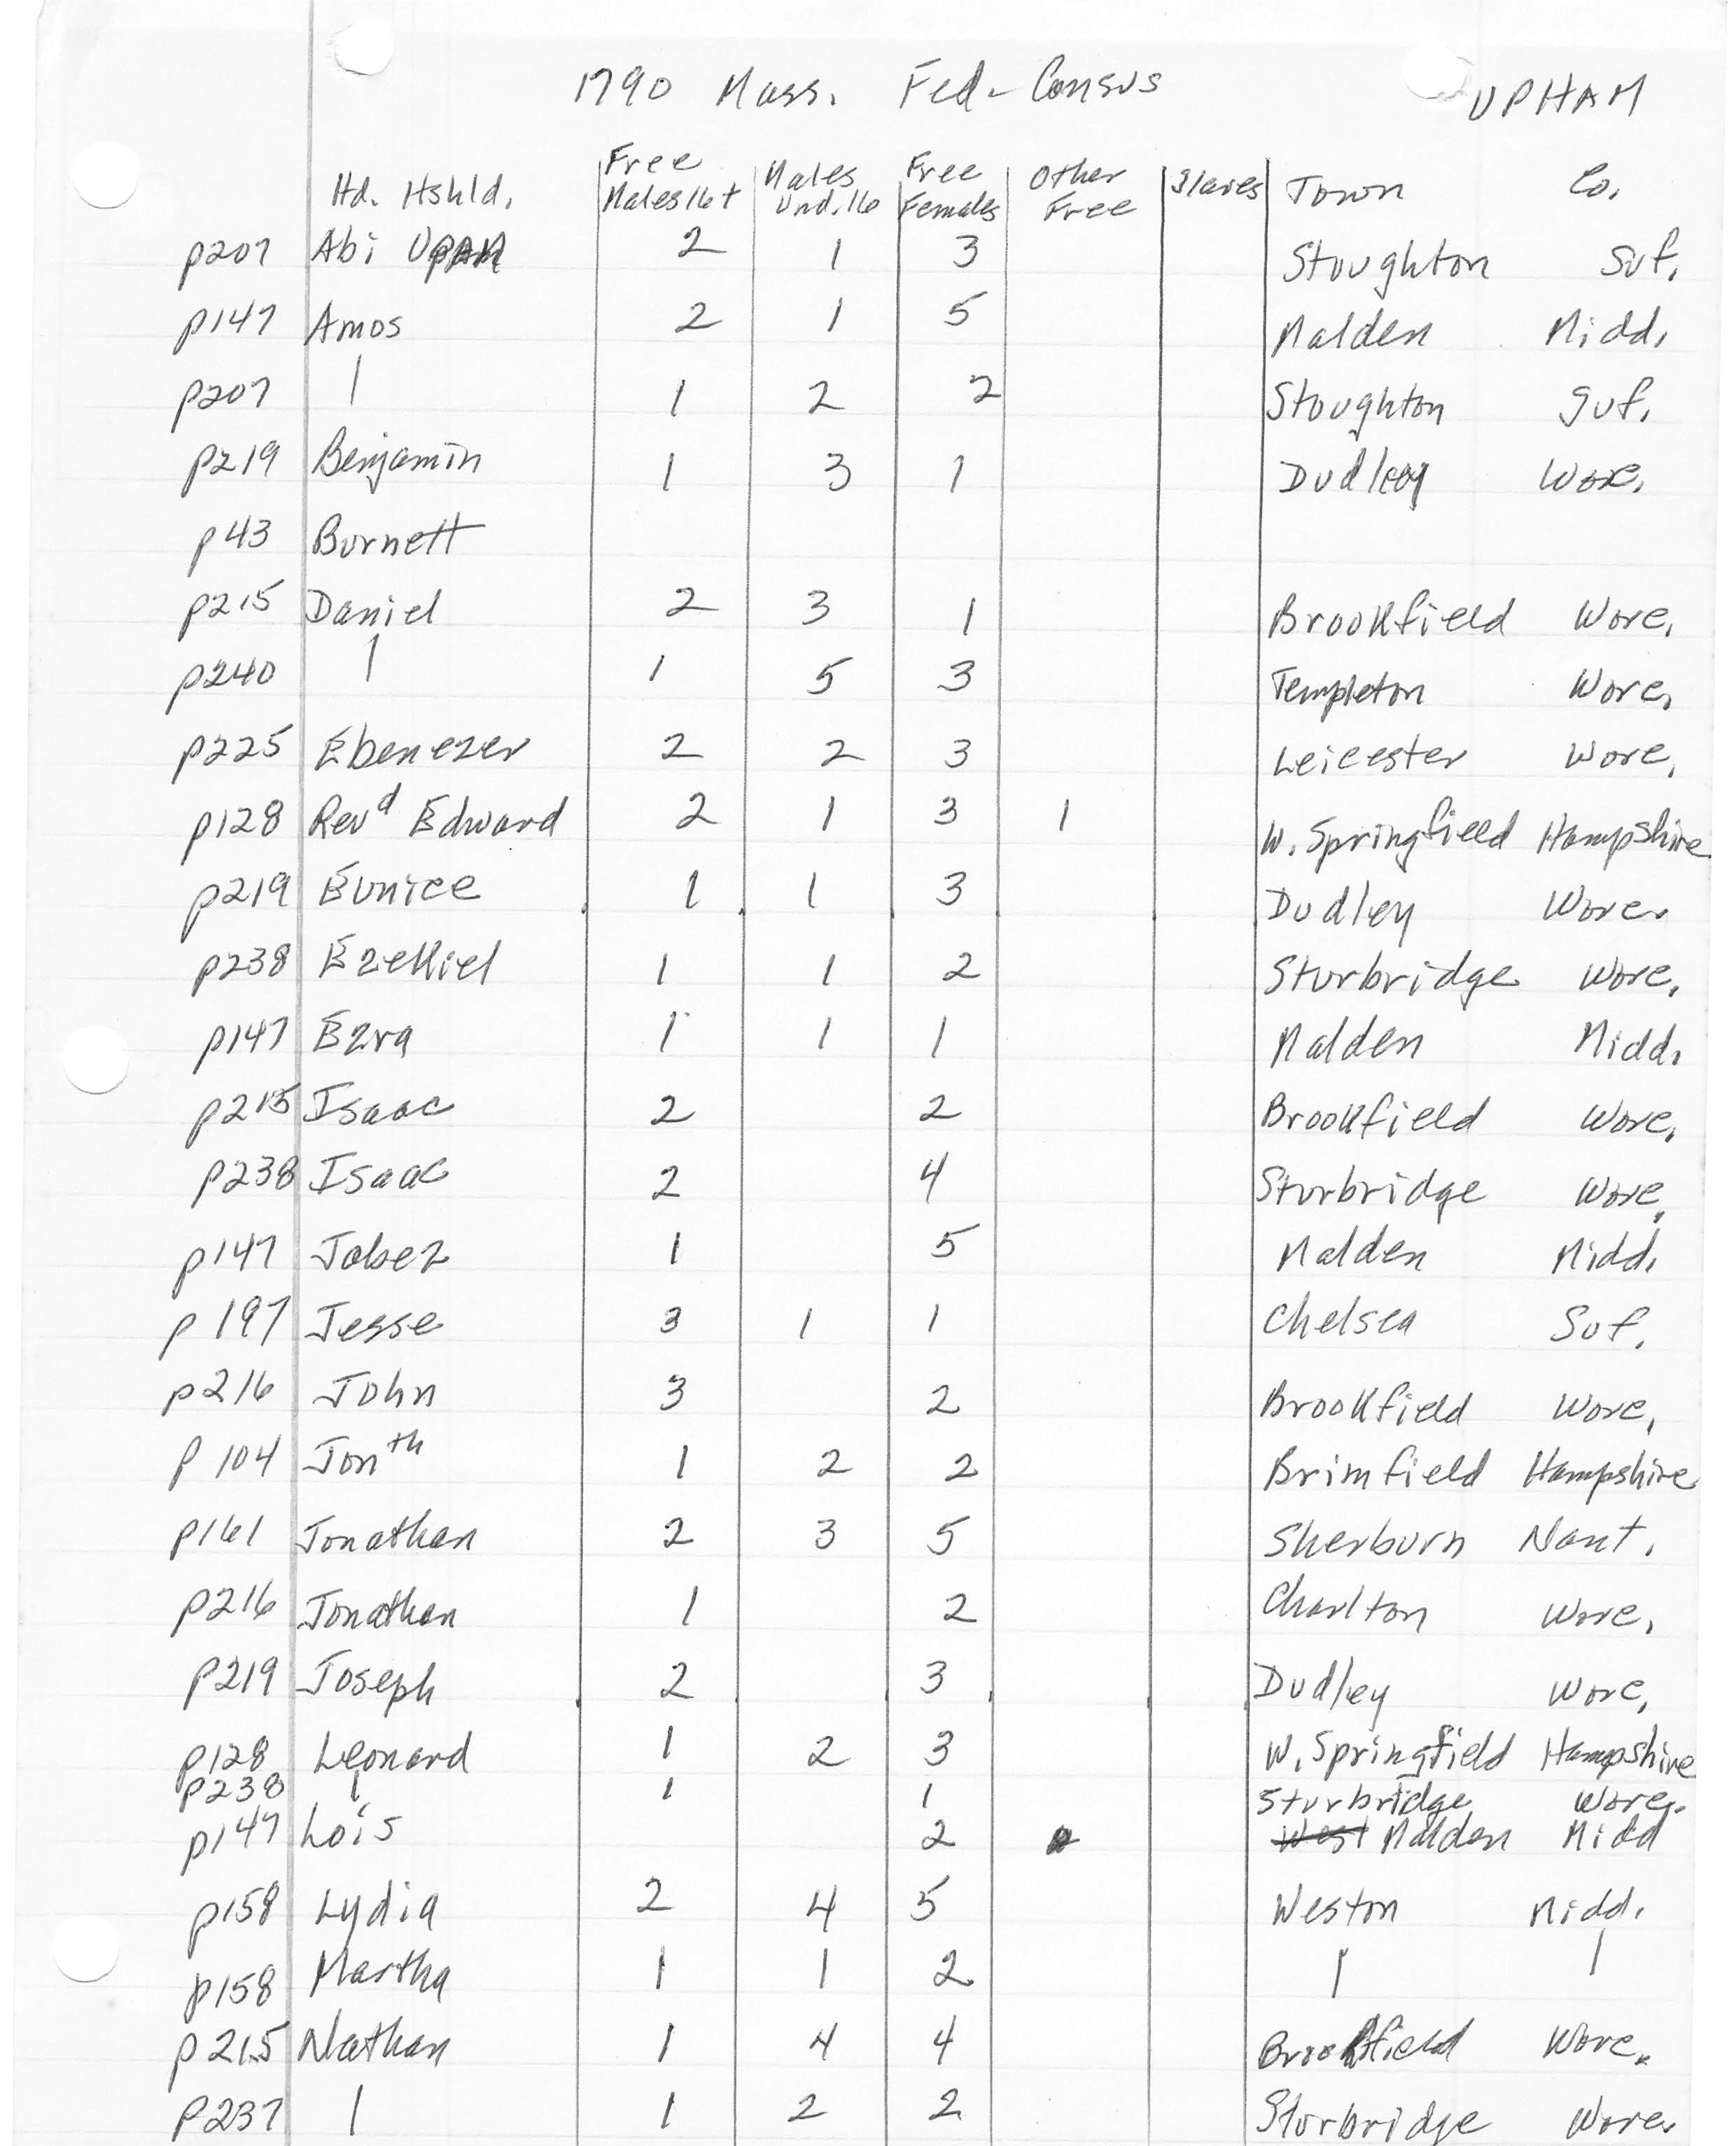 1790 Mass. Fed. Census UPHAM
Hd. Hshld. Free Males 16+ Males Und. 16 Free Females Other Free Slaves Town Co.
p207 Abi 2 1 3 Stoughton Suf.
p147 Amos 2 1 5 Malden Midd.
p207 | 1 2 2 Stoughton Suf.
p219 Benjamin 1 3 1 Dudley Worc.
p43 Burnett
p215 Daniel 2 3 1 Brookfield Worc.
p240 | 1 5 3 Templeton Worc.
p225 Ebenezer 2 2 3 Leicester Worc.
p128 Revd Edward 2 1 3 1 W. Springfield Hampshire
p219 Eunice 1 1 3 Dudley Worc.
p238 Ezekiel 1 1 2 Sturbridge Worc.
p147 Ezra 1 1 1 Malden Midd.
p215 Isaac 2 2 Brookfield Worc.
p238 Isaac 2 4 Sturbridge Worc.
p147 Jabez 1 5 Malden Midd.
p197 Jesse 3 1 1 Chelsea Suf.
p216 John 3 2 Brookfield Worc.
p104 Jonth 1 2 2 Brimfield Hampshire
p161 Jonathan 2 3 5 Sherburn Nant.
p216 Jonathan 1 2 Charlton Worc.
p219 Joseph 2 3 Dudley Worc.
p128 Leonard 1 2 3 W. Springfield Hampshire
p238 | 1 1 Sturbridge Worc.
p147 Lois 2 West Malden Midd
p158 Lydia 2 4 5 Weston Midd.
p158 Martha 1 1 2 | |
p215 Nathan 1 4 4 Brookfield Worc.
p237 | 1 2 2 Sturbridge Worc.